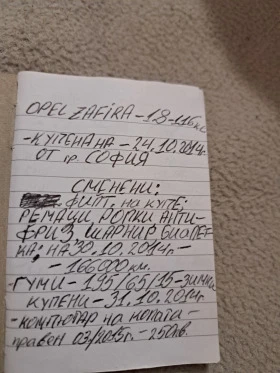 OPEL ZAFIRA - 1.8 - 116 к.с
- КУПЕНА НА - 24.10.2014г.
ОТ гр. СОФИЯ
СМЕНЕНИ:
ФИЛТ. на КУПЕ;
РЕМАЦИ, РОЛКИ АНТИ-
ФРИЗ, ШАРНИР БИАЛЕТ-
КА; НА 30.10.2014г -
- 166 000 км.
- ГУМИ - 195/65/15 - ЗИМНИ
КУПЕНИ - 31.10.2014г
- КОМПЮТАР на колата -
правен 03/2015г. - 250лв.